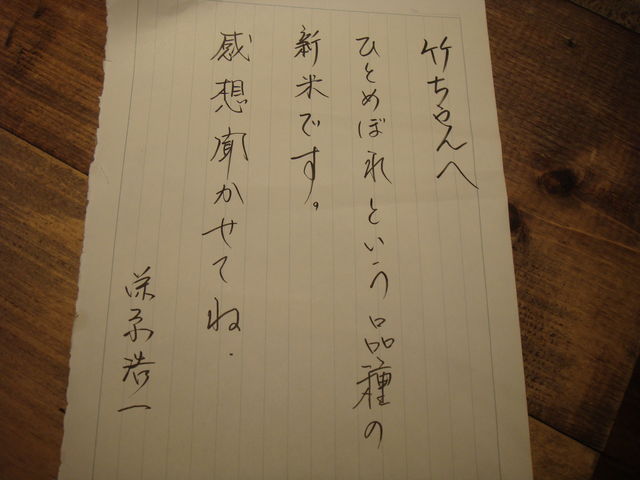 竹ちゃんへ
ひとめぼれという品種の
新米です。
感想聞かせてね.
栄子浩一